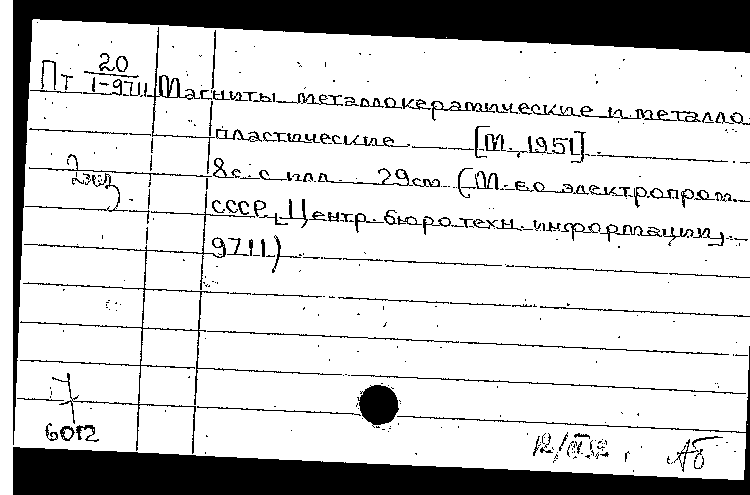 Пт 20/I-9711 Магниты металлокерамические и металло-
пластические. [М., 1951].
2 экз. 8 с. с илл. 29 см (М-во электропром.
СССР. Центр. бюро техн. информации,
9711)
6012
АБ